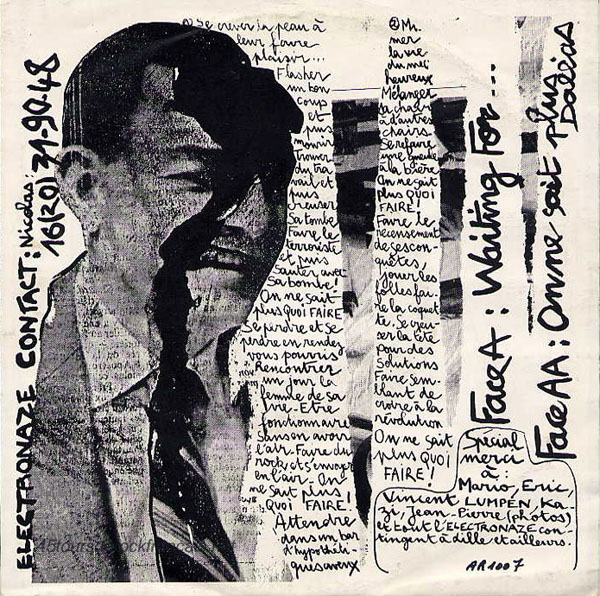 ELECTRONAZE CONTACT: Nicolas:
16(20) 31-90-48
① Se crever la peau à
leur faire
plaisir...
Flasher
un bon
coup
et
puis
mourir
Trouver
du tra
vail et
puis
creuser
Sa tombe
Faire le
terroriste
et puis
Sauter avec
Sa bombe!
On ne sait
plus QUOI FAIRE
Se perdre et se
perdre en rendez
vous pourris
Rencontrer
un jour la
femme de sa
Vie-Etre
fonctionnaire
Sans en avoir
l'air. Faire du
rock et s'envoyer
en l'air. On
ne sait plus
QUOI FAIRE!
Attendre
dans un bar
d'hypothéti-
ques aveux
② Mr.
mer
la vie
du mec
heureux
Mélanger
sa chair
à d'autres
chairs.
Se refaire
une gueule
à la bière
On ne sait
plus QUOI
FAIRE!
Faire le
recensement
de ses con-
quêtes,
jouer les
folles fai-
re la coquet
te. Se creu-
ser la tête
pour des
Solutions
Faire sem-
blant de
croire à la
révolution
On ne sait
plus QUOI
FAIRE!
Face A: Waiting For...
Face AA: On ne sait plus
Dallas
Special
merci
à:
Mario, Eric,
Vincent LUMPEN, Ka-
zi, Jean-Pierre (photos)
et tout l'ELECTRONAZE con-
tingent à dille et ailleurs.
AR1007